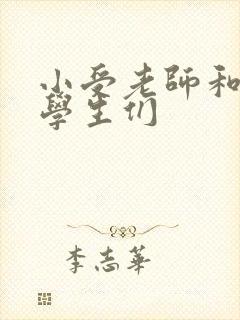 小受老師和
學生们
李志華